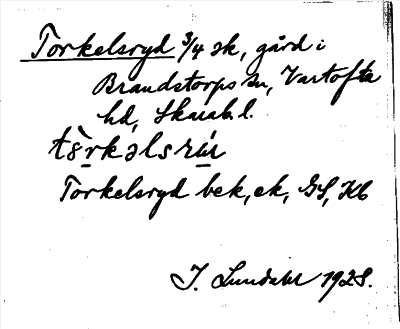 Torkelsryd 3/4 sk, gård i
Brandstorps sn, Vartofta
hd, Skarab. l.
Torkelsryd bek, ek, GS, Kb
J. Lundahl 1928.